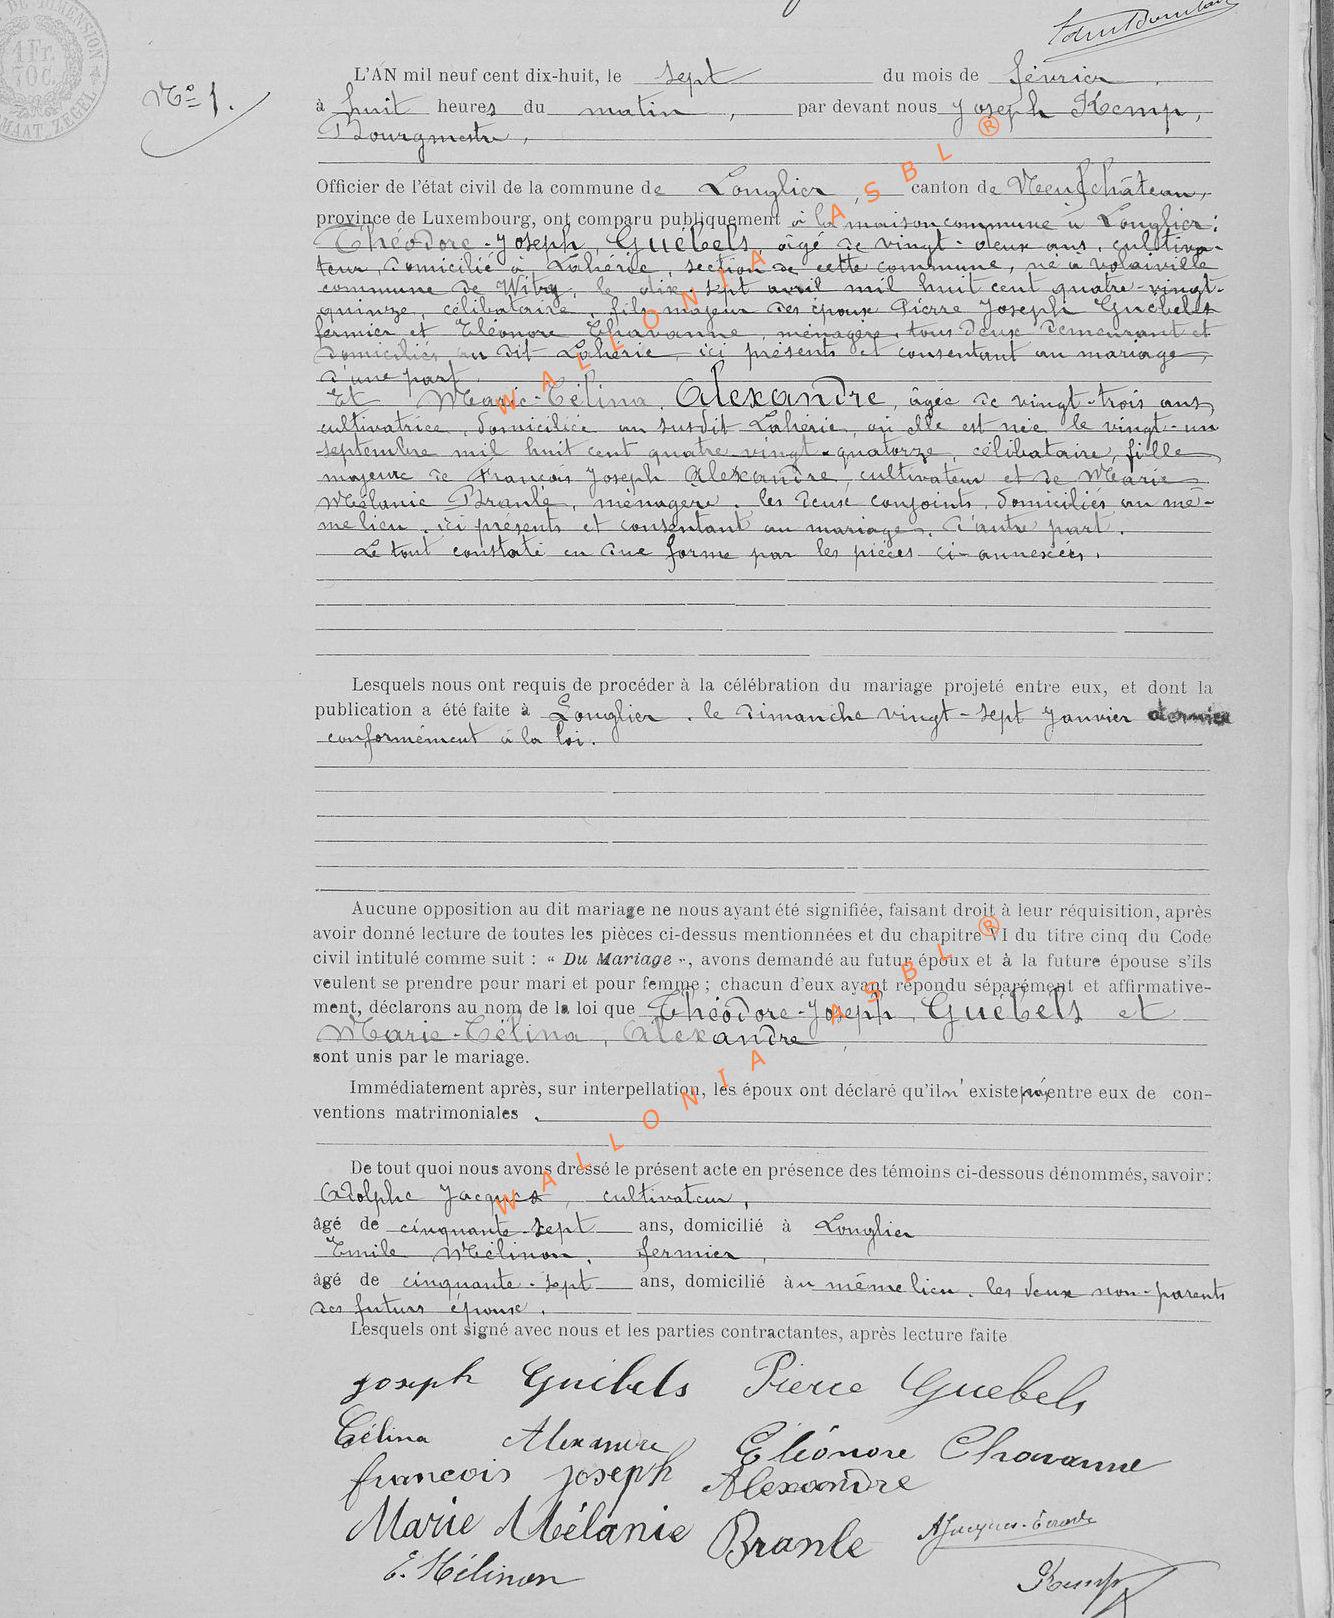 DE DIMENSION
1 Fr.
70 C.
MAAT ZEGEL
Nº 1.
L'AN mil neuf cent dix-huit, le sept du mois de février
à huit heures du matin, par devant nous Joseph Kemp,
Bourgmestre,
Officier de l'état civil de la commune de Longlier, canton de Neufchâteau,
province de Luxembourg, ont comparu publiquement à la maison commune à Longlier:
Théodore-Joseph, Guébels, âgé de vingt-deux ans, cultiva-
teur, domicilié à Lahérie, section de cette commune, né à Volaiville
commune de Witry, le dix-sept avril mil huit cent quatre-vingt-
quinze, célibataire, fils majeur des époux Pierre Joseph Guebels
fermier et Eléonore Chavanne, ménagère, tous deux demeurant et
domiciliés au dit Lahérie, ici présents et consentant au mariage,
d'une part.
Et Marie-Célina, Alexandre, âgée de vingt-trois ans,
cultivatrice, domiciliée au susdit Lahérie, où elle est née le vingt-un
septembre mil huit cent quatre-vingt-quatorze, célibataire, fille
majeure de François Joseph Alexandre, cultivateur et de Marie
Mélanie Branle, ménagère, les deux conjoints, domiciliés au mê-
me lieu, ici présents et consentant au mariage, d'autre part.
Le tout constaté en due forme par les pièces ci-annexées.
Lesquels nous ont requis de procéder à la célébration du mariage projeté entre eux, et dont la
publication a été faite à Longlier, le dimanche vingt-sept janvier dernier
conformément à la loi.
Aucune opposition au dit mariage ne nous ayant été signifiée, faisant droit à leur réquisition, après
avoir donné lecture de toutes les pièces ci-dessus mentionnées et du chapitre VI du titre cinq du Code
civil intitulé comme suit : « Du Mariage », avons demandé au futur époux et à la future épouse s'ils
veulent se prendre pour mari et pour femme ; chacun d'eux ayant répondu séparément et affirmative-
ment, déclarons au nom de la loi que Théodore-Joseph, Guébels et
Marie-Célina, Alexandre,
sont unis par le mariage.
Immédiatement après, sur interpellation, les époux ont déclaré qu'il n'existe pas entre eux de con-
ventions matrimoniales.
De tout quoi nous avons dressé le présent acte en présence des témoins ci-dessous dénommés, savoir :
Adolphe Jacques, cultivateur,
âgé de cinquante-sept ans, domicilié à Longlier
Emile Mélinon, fermier,
âgé de cinquante-sept ans, domicilié au même lieu, les deux non-parents
des futurs époux.
Lesquels ont signé avec nous et les parties contractantes, après lecture faite
Joseph Guébels Pierre Guebels
Célina Alexandre Eléonore Chavanne
françois joseph Alexandre
Marie Mélanie Branle
E. Mélinon Kemp
WALLONIA ASBL ®
WALLONIA ASBL ®